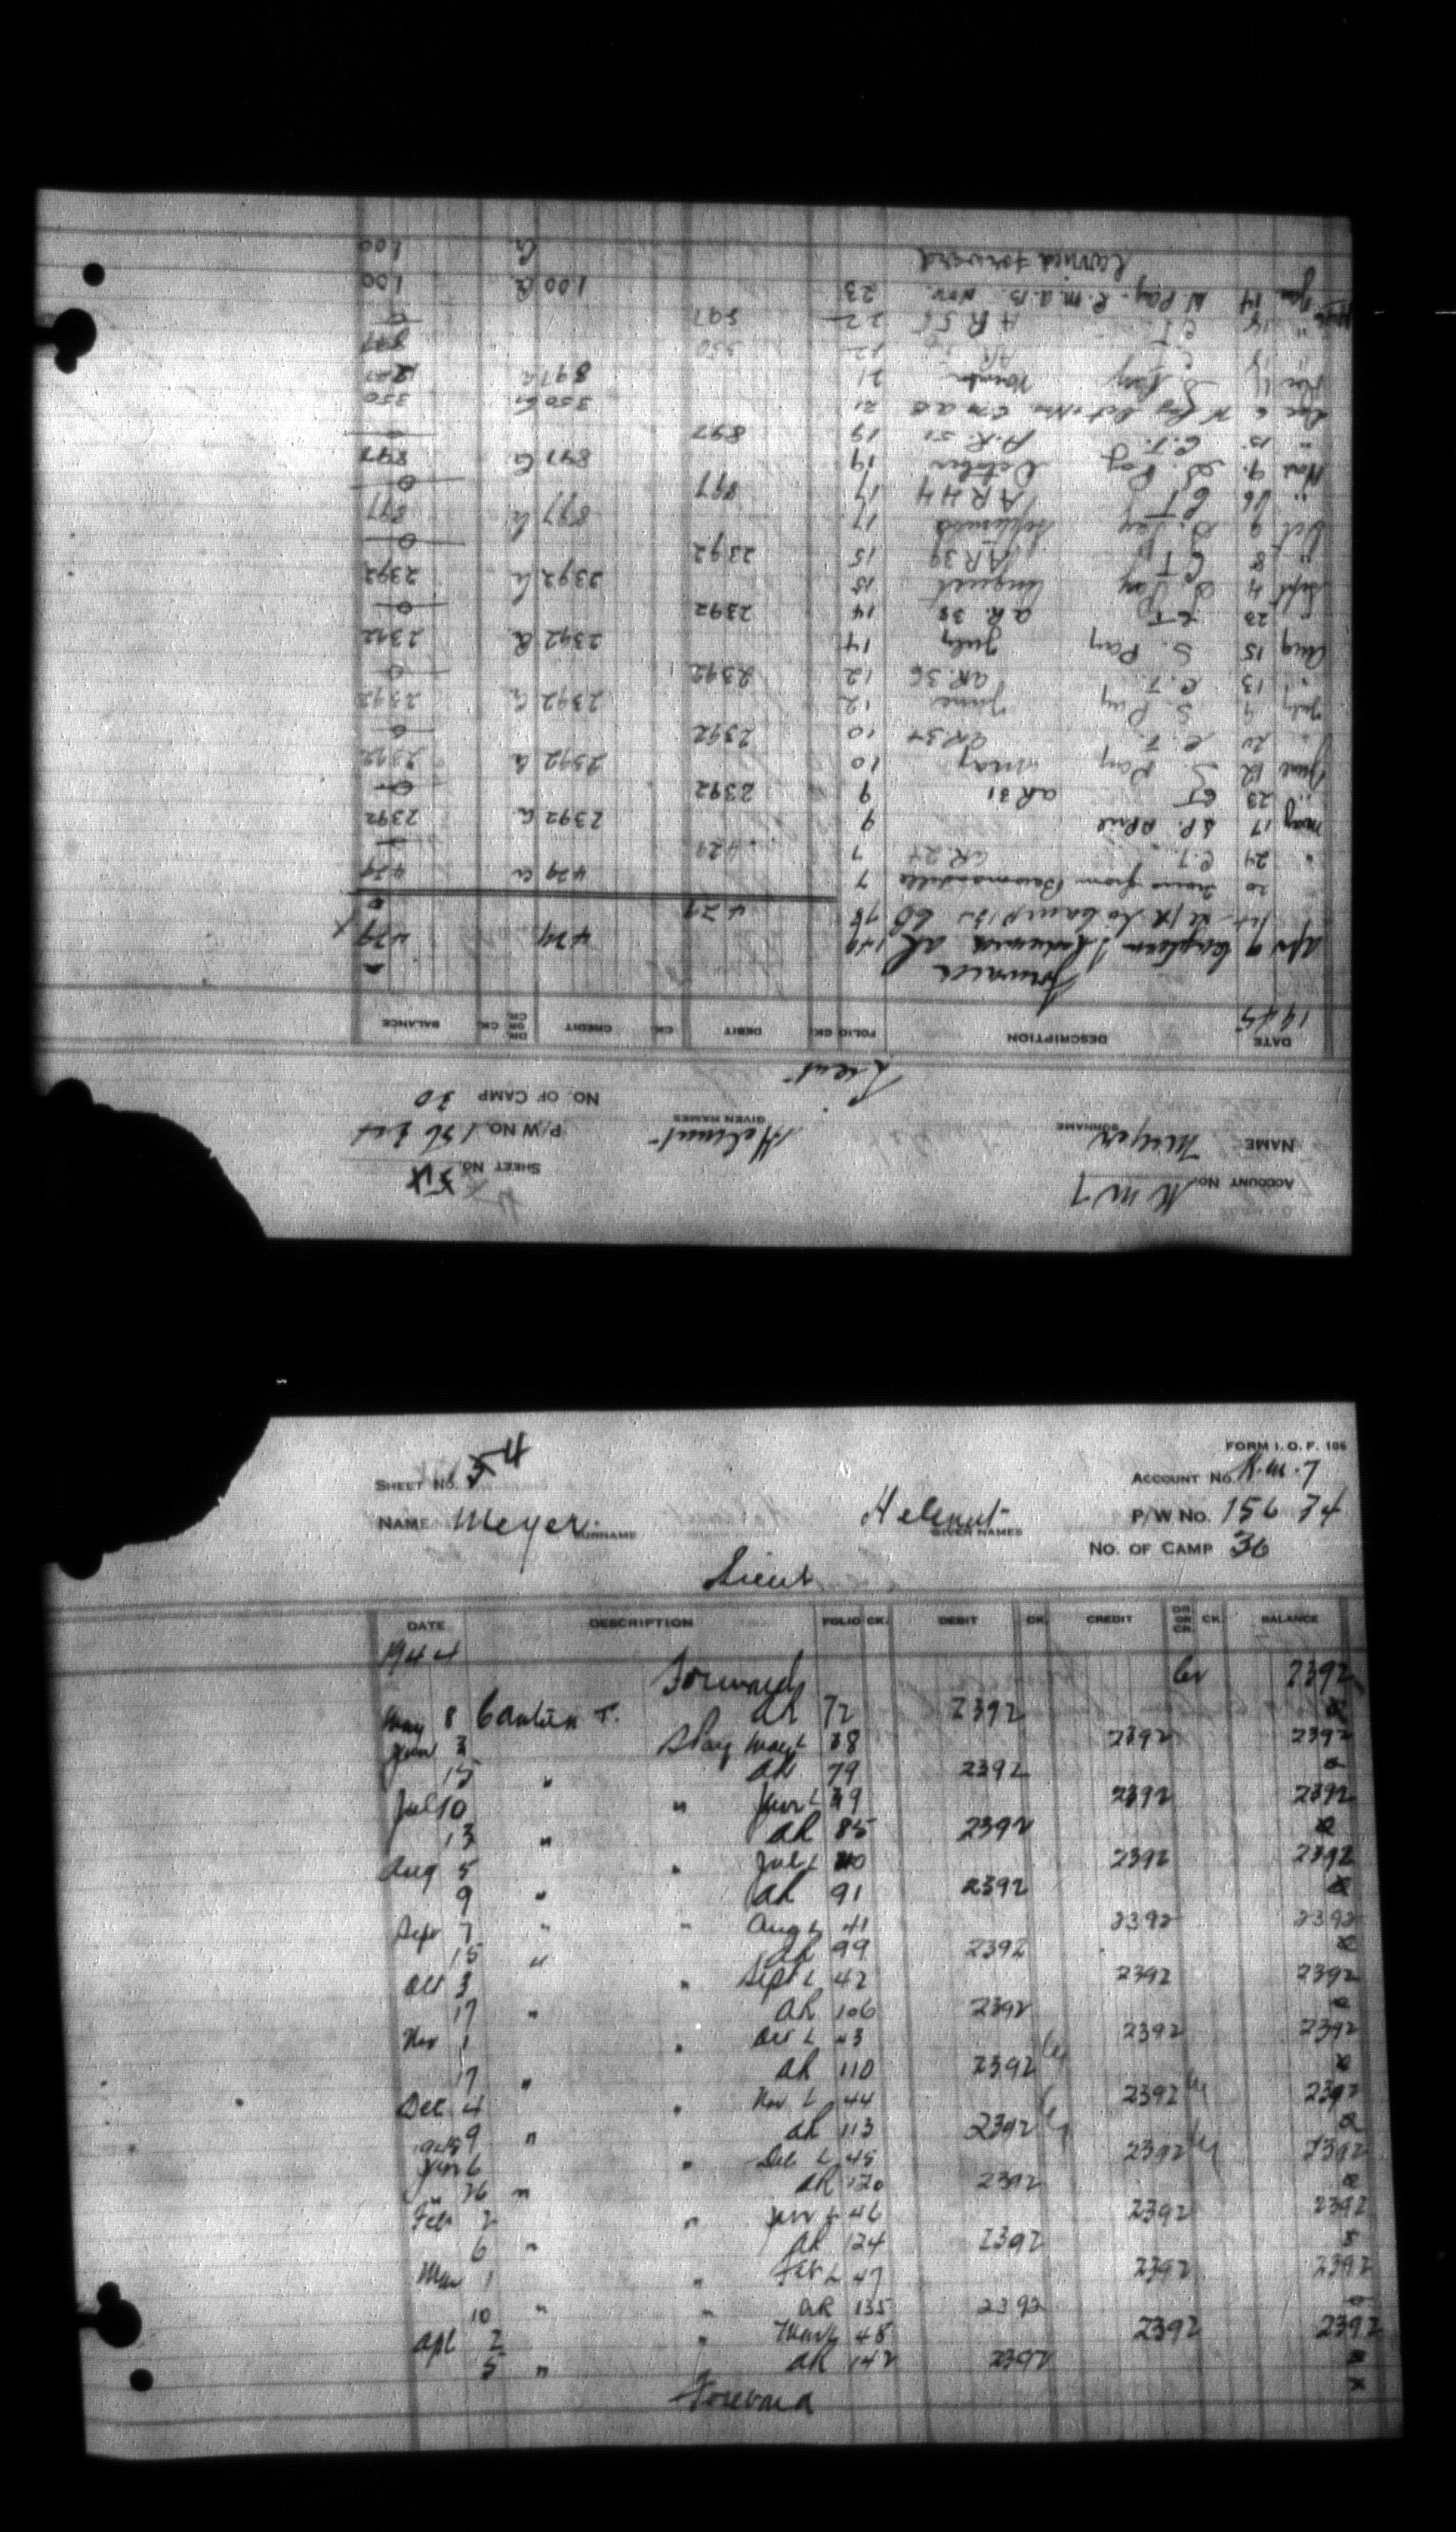 FORM I. O. F. 106
SHEET NO. 4
ACCOUNT NO. K.M.7
NAME Meyer Helmut
SURNAME GIVEN NAMES
P/W NO. 156
NO. OF CAMP 30
Lieut
DATE DESCRIPTION FOLIO CK. DEBIT CK. CREDIT DR. OR CR. CK. BALANCE
1944
Forward Cr 2392
May 8 Canteen T. AR 72 2392
Jun 3 S Pay May L 38 2392 2392
15 " AR 79 2392
Jul 10 " Jun L 39 2392 2392
13 " AR 85 2392
Aug 5 " Jul L 40 2392 2392
9 " AR 91 2392
Sept 7 " " Aug L 41 2392 2392
15 " AR 99 2392
Oct 3 " Sept L 42 2392 2392
17 " AR 106 2392
Nov 1 " Oct L 43 2392 2392
17 " AR 110 2392
Dec 4 " Nov L 44 2392 2392
9 " AR 113 2392
1945
Jan 6 " Dec L 45 2392 2392
26 " AR 120 2392
Feb 2 " Jan L 46 2392 2392
6 " AR 124 2392
Mar 1 " Feb L 47 2392 2392
10 " " AR 135 2392
Apl 2 " Mar L 48 2392 2392
5 " AR 142 2392
Forward
ACCOUNT NO. K M 7
SHEET NO.
NAME Meyer Helmut
SURNAME GIVEN NAMES
P/W NO. 156
NO. OF CAMP 30
Lieut
DATE DESCRIPTION FOLIO CK. DEBIT CK. CREDIT DR. OR CR. CK. BALANCE
1945
Forward
Apr 9 149 429 429
to Camp 78 429 0
20 from Bowmanville 7 429 Cr 429
" 24 C.T. AR 27 7 429
May 17 S.P. April 9 2392 Cr 2392
" 23 CT AR 31 9 2392 0
June 12 S. Pay May 10 2392 Cr 2392
" 20 C.T. AR 34 10 2392 0
July 9 S. Pay June 12 2392 Cr 2392
" 13 C.T. AR. 36 12 2392 0
Aug 15 S. Pay July 14 2392 Cr 2392
" 23 CT AR. 38 14 2392 0
Sept 4 S. Pay August 15 2392 Cr 2392
" 8 CT AR 39 15 2392 0
Oct 9 S. Pay September 17 897 Cr 897
" 16 CT AR 44 17 897 0
Nov 9 S. Pay October 19 897 Cr 897
" 15 C.T. A.R. 51 19 897 0
Dec 6 W Pay 21 350 Cr 350
Dec 11 S. Pay November 21 897 Cr
" C.T. AR 12 350 897
" 18 C.T. AR 55 22 897 0
Jan 14 W Pay. Nov. 23 100 Cr 100
Carried forward Cr 100